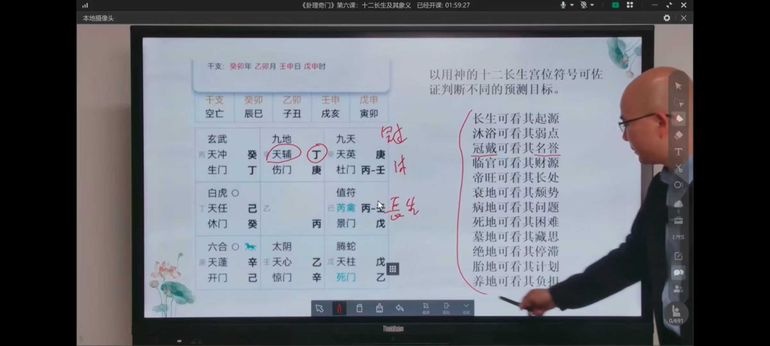 《卦理奇门》第六课：十二长生及其象义 已经开课：01:59:27
本地摄像头
干支：癸卯年 乙卯月 壬申日 戊申时
干支 癸卯 乙卯 壬申 戊申
空亡 辰巳 子丑 戌亥 寅卯
玄武 九地 九天
天冲 癸 天辅 丁 天英 庚
生门 丁 伤门 庚 杜门 丙-壬
白虎 值符
天任 己 乙 芮禽 丙-壬
休门 癸 丙 景门 戊
六合 太阴 腾蛇
天蓬 辛 天心 乙 天柱 戊
开门 己 惊门 辛 死门 乙
长生
以用神的十二长生宫位符号可佐
证判断不同的预测目标。
长生可看其起源
沐浴可看其弱点
冠戴可看其名誉
临官可看其财源
帝旺可看其长处
衰地可看其颓势
病地可看其问题
死地可看其困难
墓地可看其藏思
绝地可看其停滞
胎地可看其计划
养地可看其负担